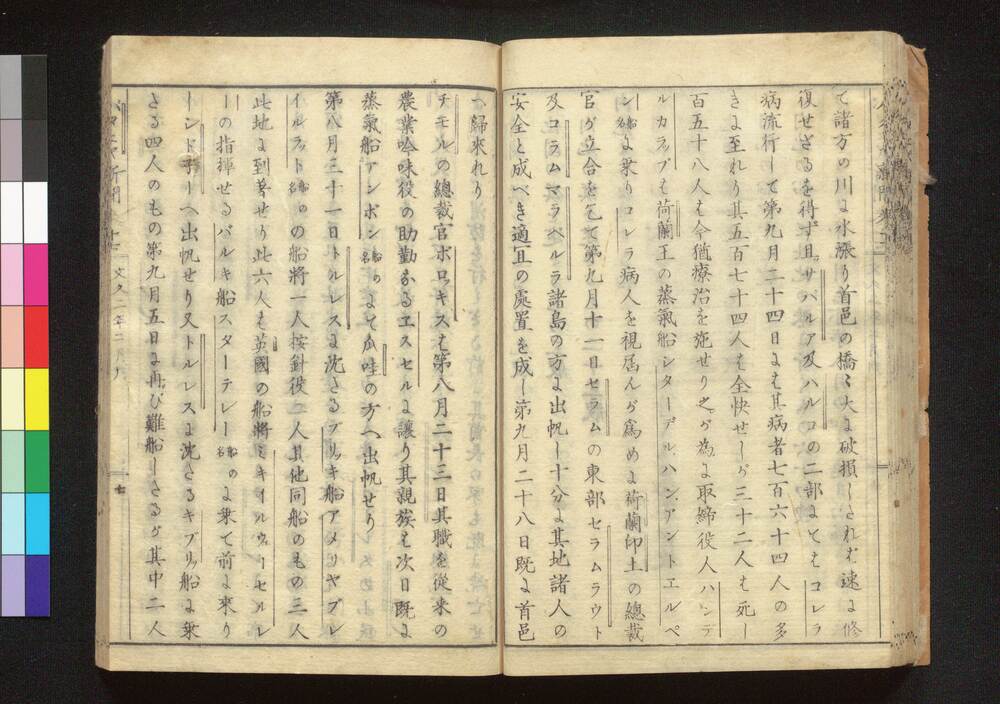 て諸方の川は水漲り首邑の橋〻大は破損しされむ速は修
復せざるを得ず且サパルア及ハルコの二部はてもコレラ
病流行して第九月二十四日はも其病者七百六十四人の多
きは至れり其五百七十四人も全快せしが三十二人も死し
百五十八人も今猶療治を施せり之が為は取締役人ハンデ
ルカラブも荷蘭王の蒸氣船シターデル、ハン、アントエルペ
ン船名は乗りコレラ病人を視届んが爲めは荷蘭印土の總裁
官が立合を乞て第九月十一日セラムの東部セラムラウト
及コラムマラベルラ諸島の方は出帆し十分は其地諸人の
安全と成べき適宜の處置を成し第九月二十八日既は首邑
へ歸來れり
チモルの總裁官ボロキスも第八月二十三日其職を從来の
農業吟味役の助勤なるエスセルは讓り其親族も次日既は
蒸氣船アンボン船名のはて瓜哇の方へ出帆せり
第八月三十一日トルレスは沈さるブリッキ船アメリヤブレ
イルフット船名のの船將一人按針役二人其他同船のもの三人
此地は到着せり此六人も英國の船將ミキイルウーセルレ
ーの指揮せるバルキ船スターテレー船名のは乗て前は來り
ーンド子ーへ出帆せり又トルレスは沈さるキブリッ船は乗
さる四人のもの第九月五日は再び難船しさるが其中二人
十二
文久二年二月
七